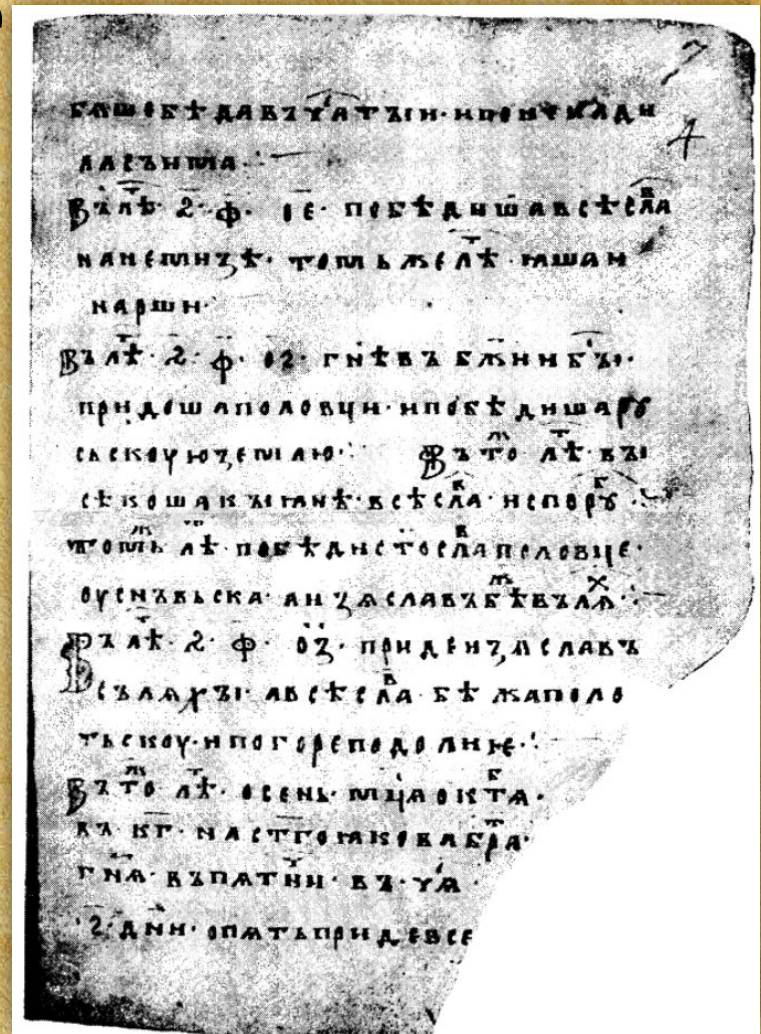 въ лѣⷮ ҂ѕ҃ ф҃ о҃е побѣдишавсѣслаⷡ
нанемизѣ · томьжелѣⷮ ꙗшаи
нарши ·
въ лѣⷮ ҂ѕ҃ · ф҃ · о҃ѕ · гнѣвъ бж҃ии бꙑⷭ ·
придошаполовци · ипобѣдишароу
сьскоуюземлю · въⷤто лѣⷮ · вꙑ
сѣкошакꙑꙗнѣ · всѣслаⷡ · испороуⷠ
томьⷤ лѣⷮ · побѣдистослаⷡ половце ·
оусновьска · аизѧславъⷤ бѣвълѧⷯ
въ лѣⷮ ҂ѕ҃ · ф҃ · о҃з · придеизѧславъ
съ лѧхꙑ · авсѣслаⷡ · бѣжаполо
тьскоу · ипогореподолиѥ ·
въⷤто лѣⷮ · осень · мц҃ѧ октѧⷠ ·
въ к҃г · настг҃оꙗковабраⷮ ·
гнⷭ҇ѧ · въпѧтⷩ҇ии · въ · чⷭ҇ѧ
ѕ҃ · дн҃и · опѧтьпридевсе